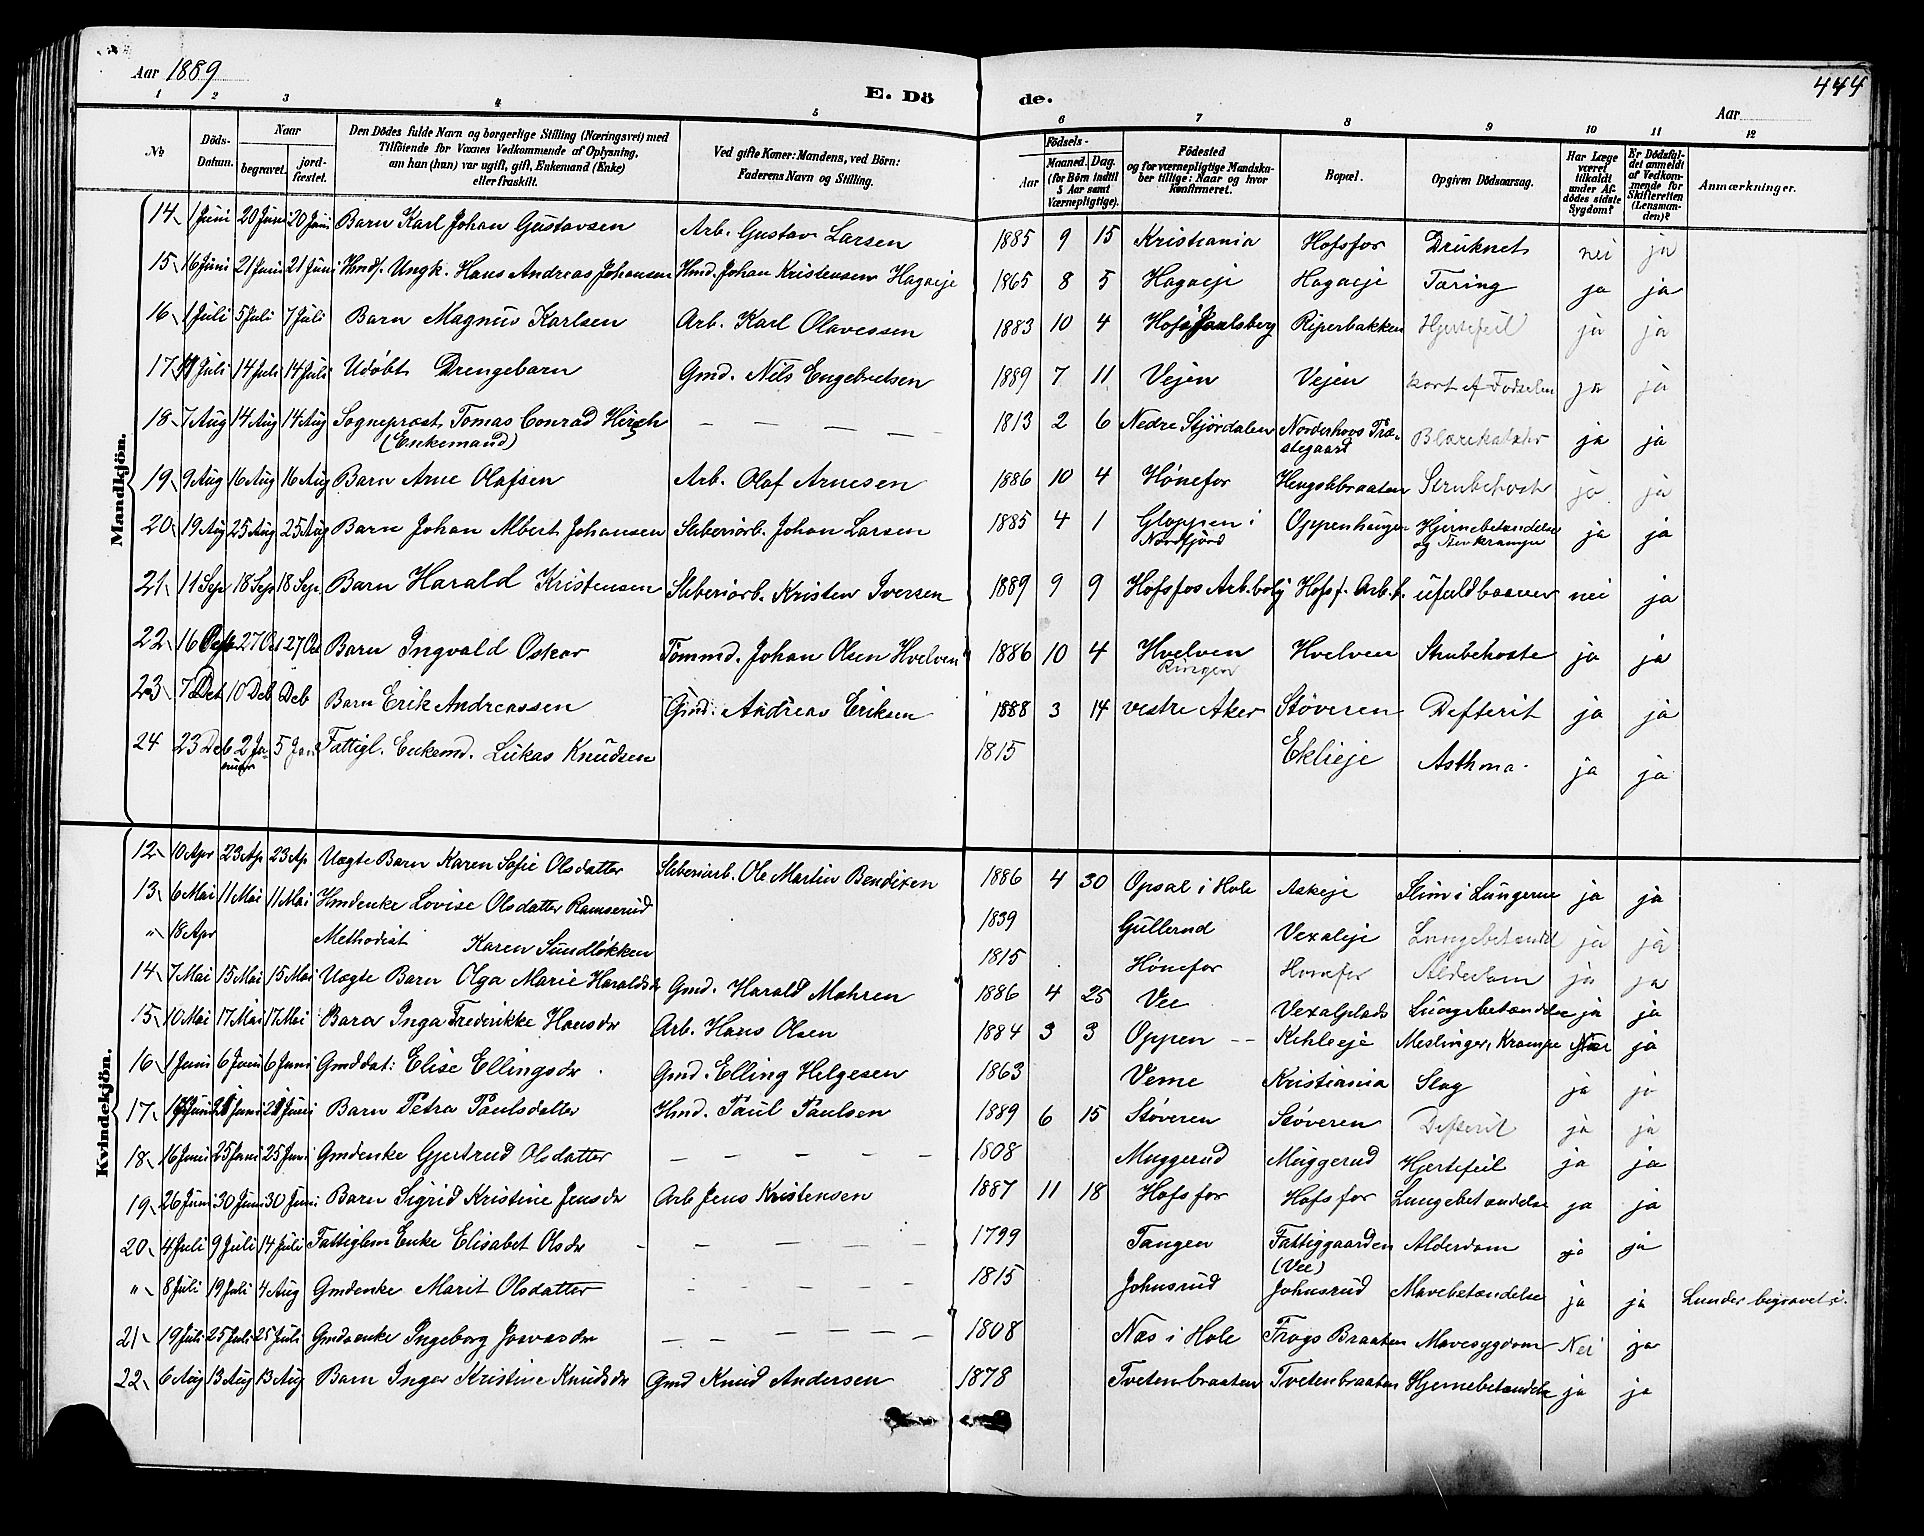 Aar 1889
E. Dö
de.
Aar
444
1 2 3 4 5 6 7 8 9 10 11 12
№
Döds-Datum.
Naar
begravet.
jord-fæstet.
Den Dödes fulde Navn og borgerlige Stilling (Næringsvei) med
Tilföiende for Voxnes Vedkommende af Oplysning,
om han (hun) var ugift, gift, Enkemand (Enke)
eller fraskilt.
Ved gifte Koner: Mandens, ved Börn:
Faderens Navn og Stilling.
Födsels-
Aar
Maaned. Dag.
(for Börn indtil 5 Aar samt Værnepligtige).
Födested
og for værnepligtige Mandskaber tillige: Naar og hvor Konfirmeret.
Bopæl.
Opgiven Dödsaarsag.
Har Læge været tilkaldt under Afdödes sidste Sygdom?
Er Dödsfaldet anmeldt af Vedkommende for Skifteretten (Lensmanden)?
Anmærkninger.
Mandkjön.
14 1 Juni 20 Juni 20 Juni Barn Karl Johan Gustavsen Arb. Gustav Larsen 1885 9 15 Kristiania Hofsfos Druknet nei ja
15 16 Juni 21 Juni 21 Juni Hmds. Ungk. Hans Andreas Johansen Hmd. Johan Kristensen Hagaeje 1865 8 5 Hagaeje Hagaeje Tæring ja ja
16 1 Juli 5 Juli 7 Juli Barn Magnus Karlsen Arb. Karl Olavessen 1883 10 4 Hofs Riperbakken Hjertefeil ja ja
17 11 Juli 14 Juli 14 Juli Udøbt Drengebarn Gmd. Nils Engebretsen 1889 7 11 Vejen Vejen kort e. Fødselen ja ja
18 7 Aug 14 Aug 14 Aug Sogneprest Tomas Conrad Hirsch — — — — 1813 2 6 Nedre Stjördalen Norderhovs Præ- Blærekatarr ja ja
(Enkemand) stegaard
19 9 Aug 16 Aug 16 Aug Barn Arne Olafsen Arb. Olaf Arnesen 1886 10 4 Hønefos Hengslebraaten Strubehoste ja ja
20 19 Aug 25 Aug 25 Aug Barn Johan Albert Johansen Sliberiarb. Johan Larsen 1885 4 1 Gloppen i Oppenhaugen Hjernebetændelse ja ja
Nordfjord
21 11 Sep 18 Sep 18 Sep Barn Harald Kristensen Sliberiarb. Kristen Iversen 1889 9 9 Hofsfos Arb.bolig Hofsf. Arb.b. ufuldbaaren nei ja
22 16 27 Oct 27 Oct Barn Ingvald Oskar Tømmd. Johan Olsen Hvelven 1886 10 4 Hvelven Hvelven Strubehoste ja ja
Ringer.
23 7 Det 10 Deb Deb Barn Erik Andreassen Gmd. Andreas Eriksen 1888 3 14 vestre Aker Støveren Defterit ja ja
24 23 Deb 2 Ja- 5 Jan Fattigl. Enkemd. Lukas Knudsen 1815 Eklieje Asthma. ja ja
nuar
Kvindekjön.
12 10 Apr 23 Ap 23 Ap Uægte Barn Karen Sofie Olsdatter Sliberiarb. Ole Martin Bendixen 1886 4 30 Opsal i Hole Askeje Slim i Lungerne ja ja
13 6 Mai 11 Mai 11 Mai Hmdenke Lovise Olsdatter Ramserud 1839 Gullerud Vexaleje Lungebetændel ja ja
" 18 Apr Methodist Karen Sundløkken 1815 Hønefos Hønefos Alderdom ja ja
14 7 Mai 15 Mai 15 Mai Uægte Barn Olga Marie Haraldsdr Gmd. Harald Mohren 1886 4 25 Vee Vexalplads Lungebetændelse ja ja
15 10 Mai 17 Mai 17 Mai Barn Inga Frederikke Hansdr Arb. Hans Olsen 1884 3 3 Oppen -- Kihleeje Meslinger, Krampe Nei ja
16 1 Juni 6 Juni 6 Juni Gmddat: Elise Ellingsdr Gmd. Elling Helgesen 1863 Veme Kristiania Slag ja ja
17 Juni Juni Juni Barn Petra Paulsdatter Hmd. Paul Paulsen 1889 6 15 Støveren Støveren Defterit ja ja
18 16 Juni 25 Juni 25 Juni Gmdenke Gjertrud Olsdatter — — — — — 1808 Muggerud Muggerud Hjertefeil ja ja
19 26 Juni 30 Juni 30 Juni Barn Sigrid Kristine Jensdr Arb Jens Kristensen 1887 11 18 Hofsfos Hofsfos Lungebetændelse ja ja
20 4 Juli 9 Juli 14 Juli Fattiglem Enke Elisabet Olsdr — — — — — 1799 Tangen Fattiggaarden Alderdom ja ja
(Vee)
" 8 Juli 19 Juli 4 Aug Gmdenke Marit Olsdatter — — — — — 1815 Johnsrud Johnsrud Mavebetændelse ja ja Lunder begravet i.
21 19 Juli 25 Juli 25 Juli Gmdenke Ingeborg Josvasdr — — — — — 1808 Næs i Hole Frogs Braaten Mavesygdom Nei ja
22 6 Aug 13 Aug 13 Aug Barn Inger Kristine Knudsdr Gmd Knud Andersen 1878 Tvetenbraaten Tvetenbraaten Hjernebetændelse ja ja